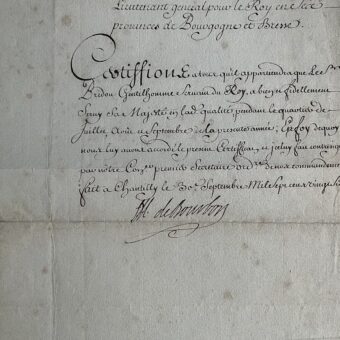 Lieutenant general pour le Roy en ses
provinces de Bourgogne et Bresse.
Certiffions a tous qu'il appartiendra que le Sr.
Bridou Gentilhomme Servant du Roy, a bien et fidellement
Servy Sa Majesté en lad. qualité pendant le quartier de
Juillet Aoust et Septembre de la presente année; En foy de quoy
nous luy avons accordé le present Certifficat, et fait contresigner
par nôtre Conseiller premier Secretaire ord.re de nos commandemens
fait a Chantilly le 30e. Septembre Mil Sept cens vingt
de Bourbon